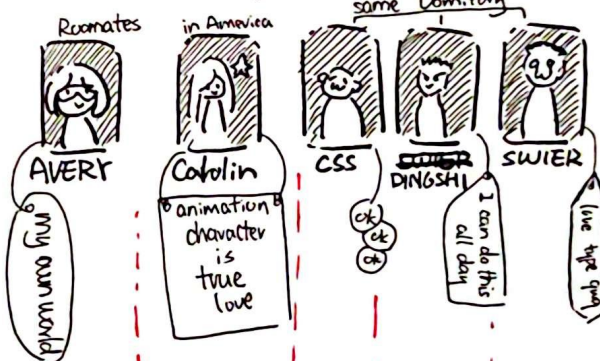 Roomates in America
same
AVERY
Carolin
CSS
DINGSHI
SWIER
my own world
animation
character
is
true
love
ok
ok
ok
I can do this
all day
love type